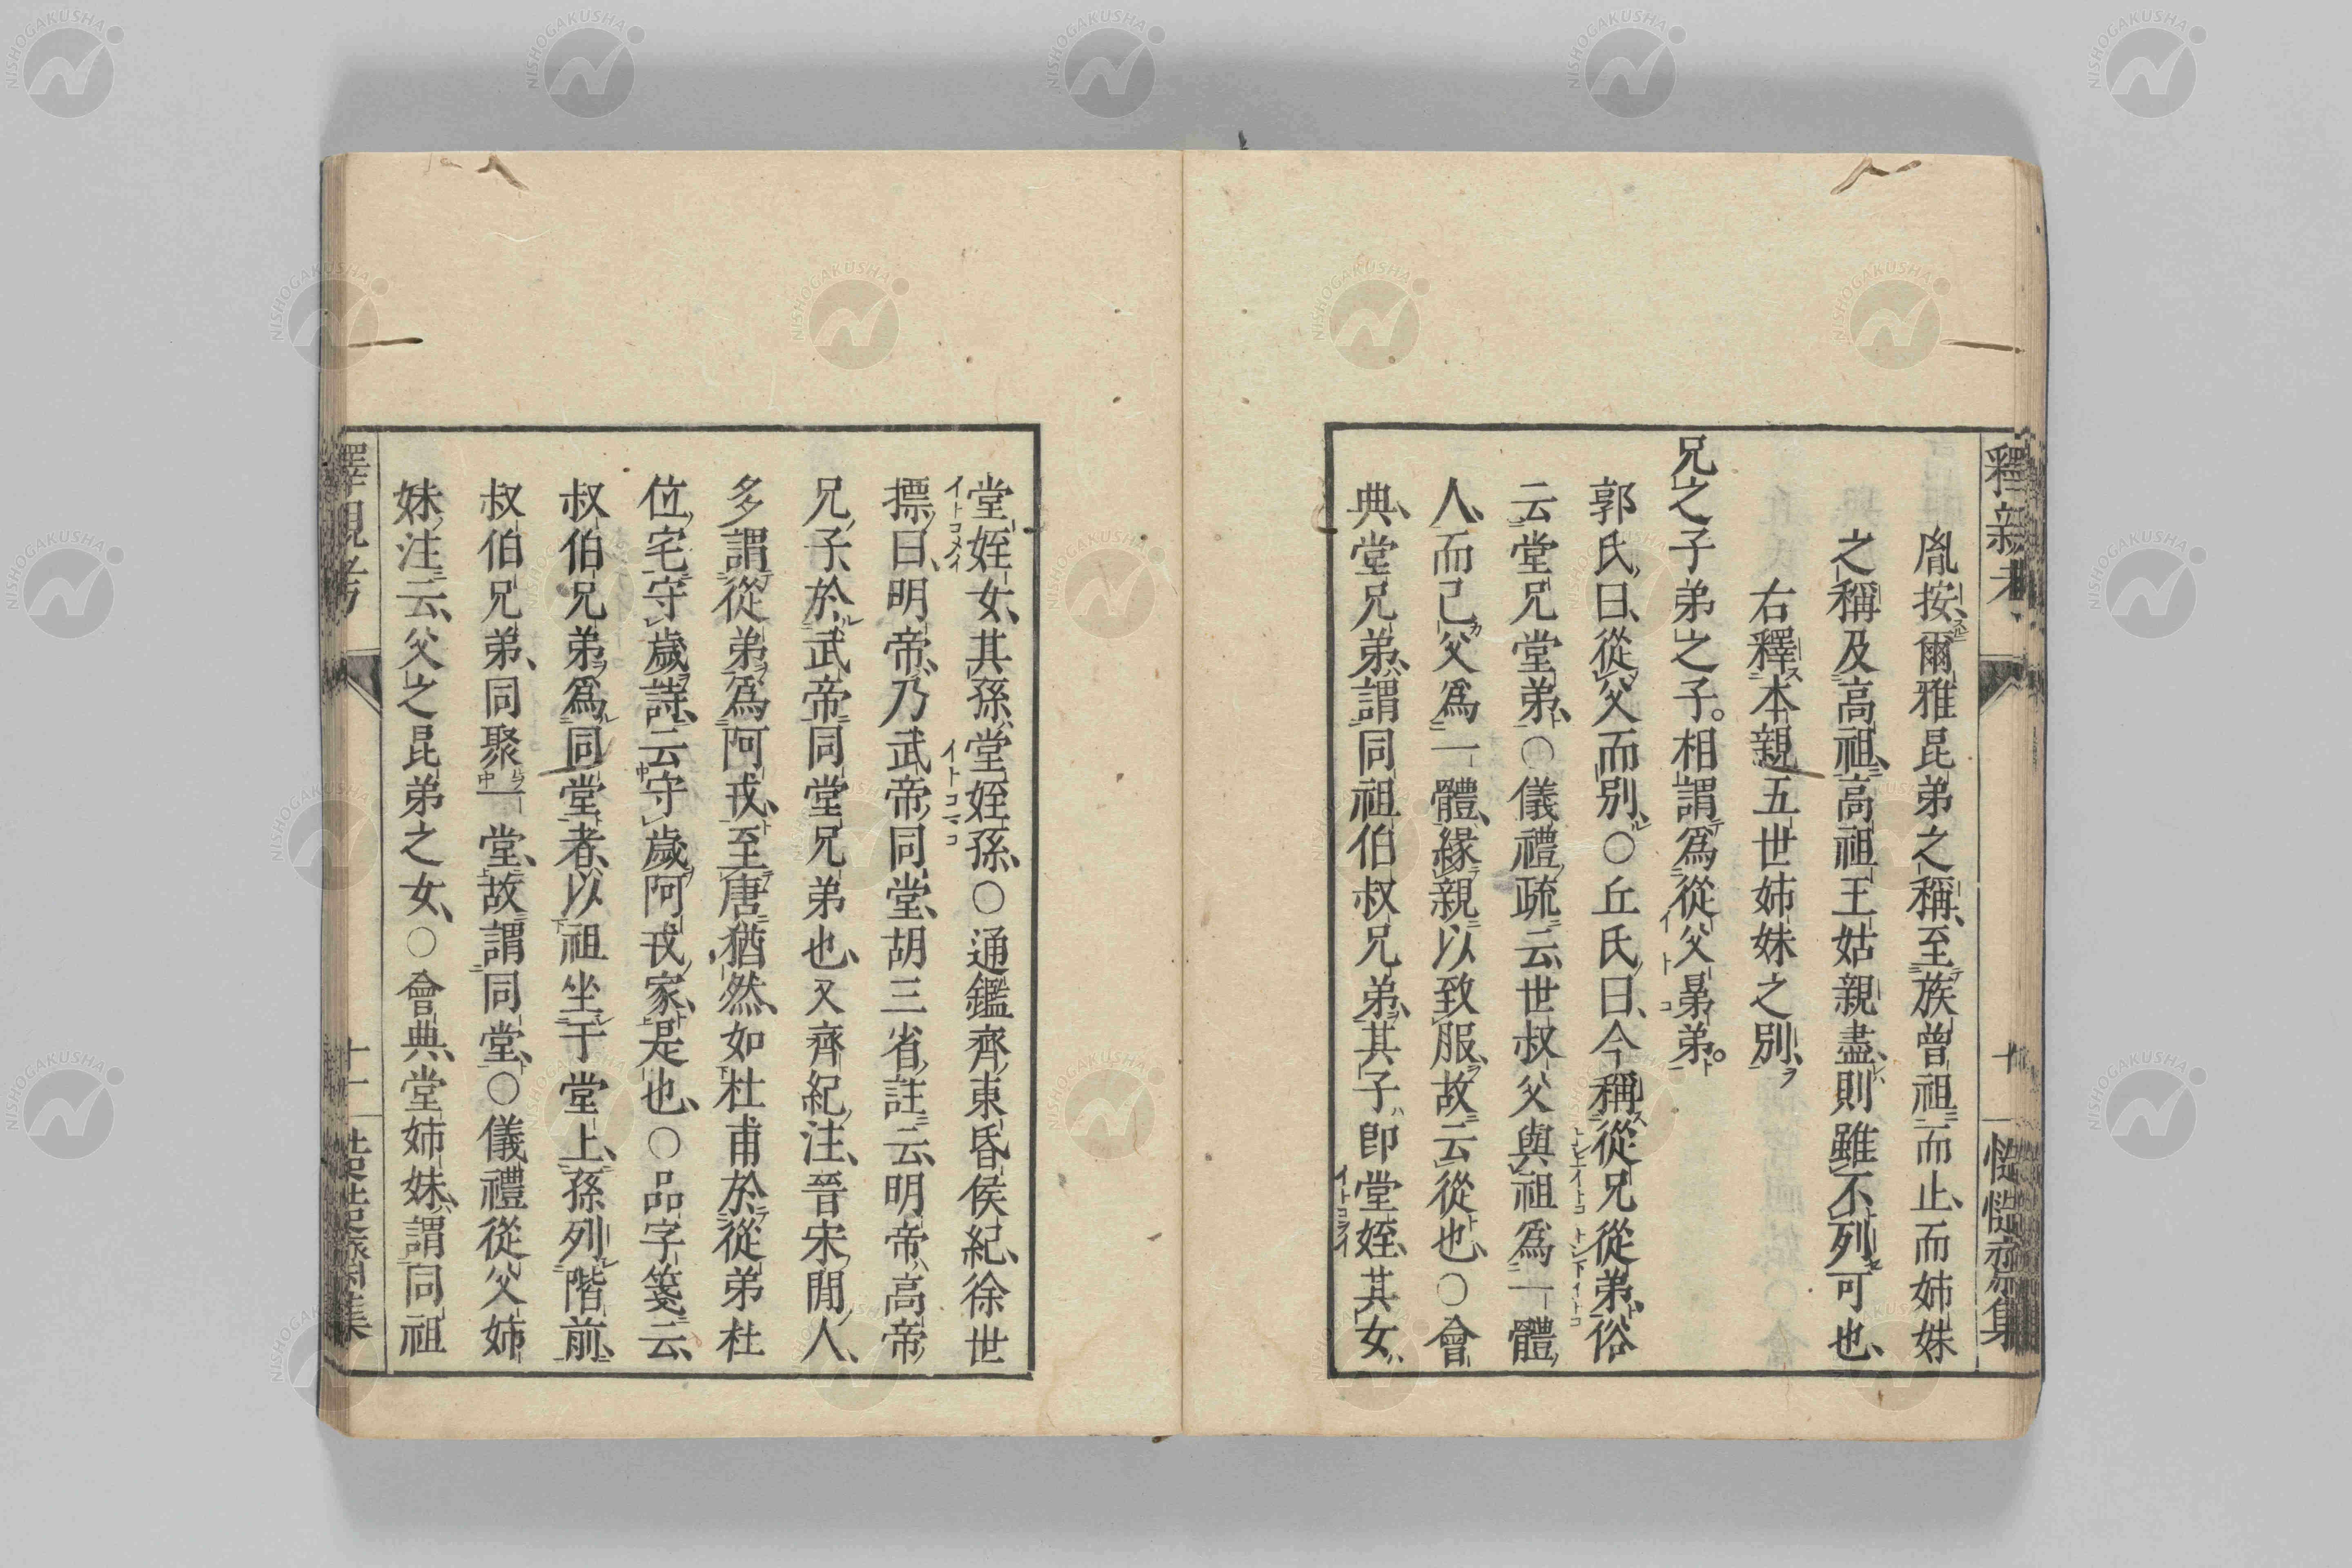 胤按爾雅昆弟之稱、至族曾祖而止、而姉妹
之稱及高祖、高祖王姑親盡、則雖不列可也、
右釋本親五世姉妹之別、
兄之子弟之子。相謂爲從父晜弟。
郭氏曰、從父而別、〇丘氏曰、今稱從兄從弟、俗
云堂兄堂弟、〇儀禮疏云、世叔父與祖爲一體、
人、而己父爲一體、緣親以致服、故云從也、〇會
典、堂兄弟、謂同祖伯叔兄弟、其子卽堂姪、其女
堂姪女、其孫堂姪孫、〇通鑑齊東昏侯紀、徐世
摽曰、明帝、乃武帝同堂、胡三省註云、明帝、高帝
兄子、於武帝同堂兄弟也、又齊紀注、晉宋閒人、
多謂從弟爲阿戎、至唐猶然、如杜甫於從弟杜
位宅守歲詩、云守歲阿戎家、是也、〇品字箋云、
叔伯兄弟、爲同堂者、以祖坐于堂上、孫列階前、
叔伯兄弟、同聚一堂、故謂同堂、〇儀禮從父姉
妹、注云、父之昆弟之女、〇會典、堂姉妹、謂同祖
釋親考
十
慥慥齋集
釋親考
十一
NISHOGAKUSHA